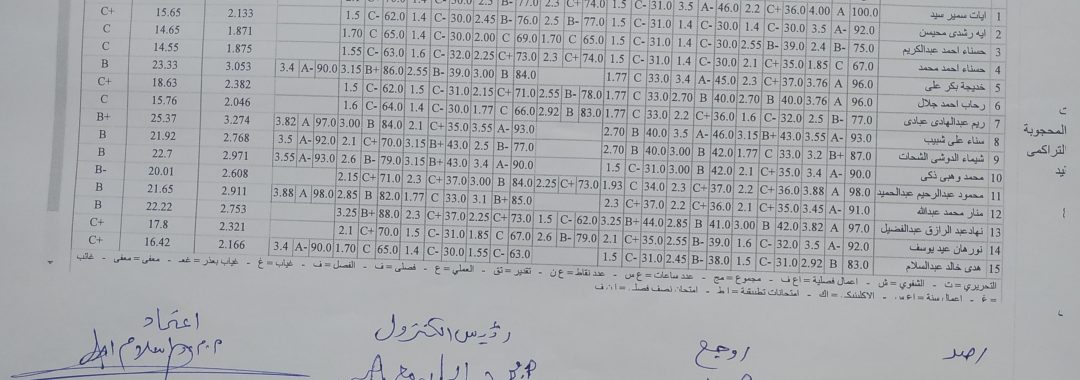 1 ايات سمير سيد 100.0 A 4.00 36.0 C+ 2.2 46.0 A- 3.5 31.0 C- 1.5 74.0 C+ 2.3 77.0 B- 2.133 15.65 C+
2 ايه رشدى محيسن 92.0 A- 3.5 30.0 C- 1.4 30.0 C- 1.4 31.0 C- 1.5 77.0 B- 2.5 76.0 B- 2.45 30.0 C- 1.4 62.0 C- 1.5 1.871 14.65 C
3 حسناء احمد عبدالكريم 75.0 B- 2.4 39.0 B- 2.55 30.0 C- 1.4 31.0 C- 1.5 65.0 C 1.70 69.0 C 2.00 30.0 C- 1.4 65.0 C 1.70 1.875 14.55 C
4 حسناء احمد محمد 67.0 C 1.85 35.0 C+ 2.1 30.0 C- 1.4 31.0 C- 1.5 74.0 C+ 2.3 73.0 C+ 2.25 32.0 C- 1.6 63.0 C- 1.55 3.053 23.33 B
5 خديجة بكر على 96.0 A 3.76 37.0 C+ 2.3 45.0 A- 3.4 33.0 C 1.77 84.0 B 3.00 39.0 B- 2.55 86.0 B+ 3.15 90.0 A- 3.4 2.382 18.63 C+
6 رحاب احمد جلال 96.0 A 3.76 40.0 B 2.70 40.0 B 2.70 33.0 C 1.77 78.0 B- 2.55 71.0 C+ 2.15 31.0 C- 1.5 62.0 C- 1.5 2.046 15.76 C
7 ريم عبدالهادى عبادى 77.0 B- 2.5 32.0 C- 1.6 36.0 C+ 2.2 33.0 C 1.77 83.0 B 2.92 66.0 C 1.77 30.0 C- 1.4 64.0 C- 1.6 3.274 25.37 B+
8 سناء على شبيب 93.0 A- 3.55 43.0 B+ 3.15 46.0 A- 3.5 40.0 B 2.70 93.0 A- 3.55 35.0 C+ 2.1 84.0 B 3.00 97.0 A 3.82 2.768 21.92 B
9 شيماء الدوشى الشحات 87.0 B+ 3.2 33.0 C 1.77 42.0 B 3.00 40.0 B 2.70 77.0 B- 2.5 43.0 B+ 3.15 70.0 C+ 2.1 92.0 A- 3.5 2.971 22.7 B
10 محمد وهبى ذكى 90.0 A- 3.4 35.0 C+ 2.1 42.0 B 3.00 31.0 C- 1.5 90.0 A- 3.4 43.0 B+ 3.15 79.0 B- 2.6 93.0 A- 3.55 2.608 20.01 B-
11 محمود عبدالرحيم عبدالحميد 98.0 A 3.88 36.0 C+ 2.2 37.0 C+ 2.3 34.0 C 1.93 73.0 C+ 2.25 84.0 B 3.00 37.0 C+ 2.3 71.0 C+ 2.15 2.911 21.65 B
12 منار محمد عبدالله 91.0 A- 3.45 35.0 C+ 2.1 36.0 C+ 2.2 37.0 C+ 2.3 85.0 B+ 3.1 33.0 C 1.77 82.0 B 2.85 98.0 A 3.88 2.753 22.22 B
13 نهادعبد الرازق عبدالفضيل 97.0 A 3.82 42.0 B 3.00 41.0 B 2.85 44.0 B+ 3.25 62.0 C- 1.5 73.0 C+ 2.25 37.0 C+ 2.3 88.0 B+ 3.25 2.321 17.8 C+
14 نورهان عيد يوسف 92.0 A- 3.5 32.0 C- 1.6 39.0 B- 2.55 35.0 C+ 2.1 79.0 B- 2.6 67.0 C 1.85 31.0 C- 1.5 70.0 C+ 2.1 2.166 16.42 C+
15 هدى خالد عبدالسلام 83.0 B 2.92 31.0 C- 1.5 38.0 B- 2.45 31.0 C- 1.5 63.0 C- 1.55 30.0 C- 1.4 65.0 C 1.70 90.0 A- 3.4
المحجوبة
التراكمى
التحريري = ت - الشفوي = ش - اعمال فصلية = اع ف - مجموع = مج - عدد ساعات = ع س - عدد نقاط = ع ن - تقدير = تق - العملي = ع - فصلى = ف - الفصل = ف - غياب = غ - غياب بعذر = غعـ - معفى = معفى - غائب
= غ - اعمال سنة = اع س - الاكلينيكى = اك - امتحانات تطبيقية = ا ط - امتحان نصف فصلى = ا ن ف
اعتماد
رئيس الكنترول